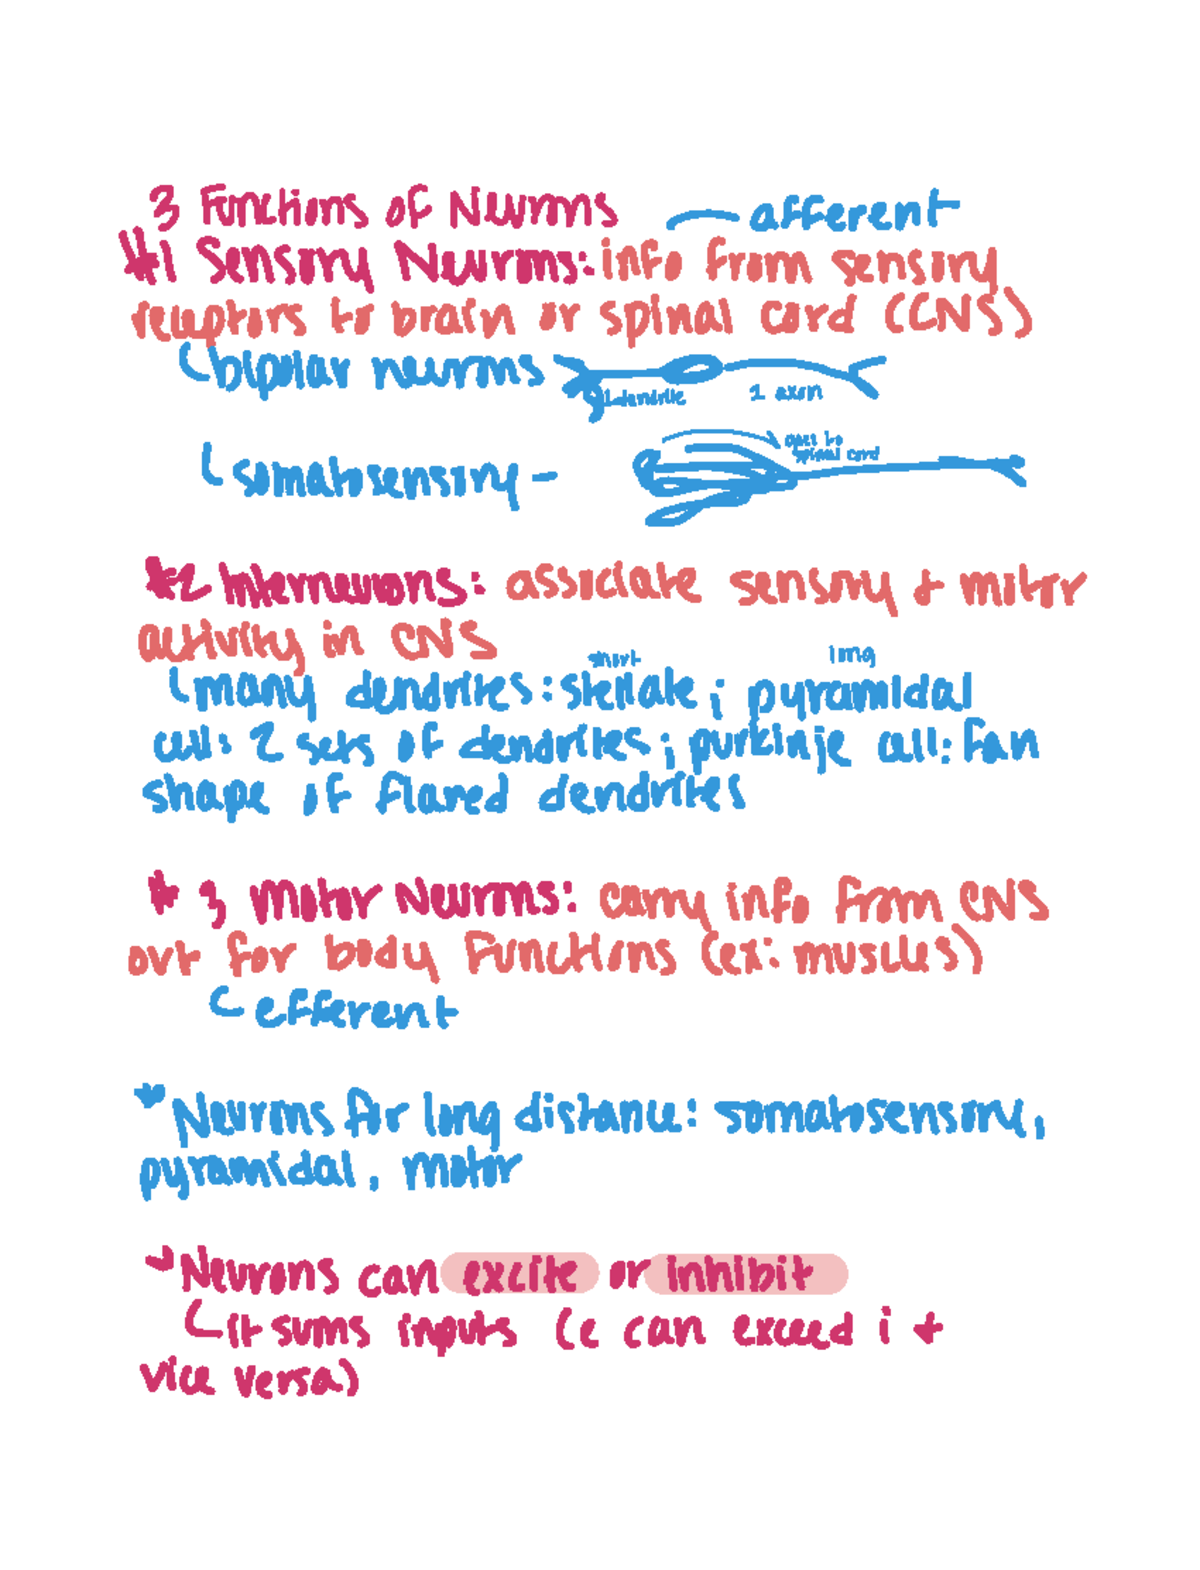 3 Functions of Neurons
afferent
#1 Sensory Neurons: info from sensory
receptors to brain or spinal cord (CNS)
bipolar neurons
1 dendrite
1 axon
goes to
spinal cord
somatosensory -
#2 Interneurons: associate sensory + motor
activity in CNS
short
long
many dendrites: stellate; pyramidal
cell: 2 sets of dendrites; purkinje cell: fan
shape of flared dendrites
#3 Motor Neurons: carry info from CNS
out for body functions (ex: muscles)
efferent
*Neurons for long distance: somatosensory,
pyramidal, motor
*Neurons can excite or inhibit
it sums inputs (e can exceed i +
vice versa)